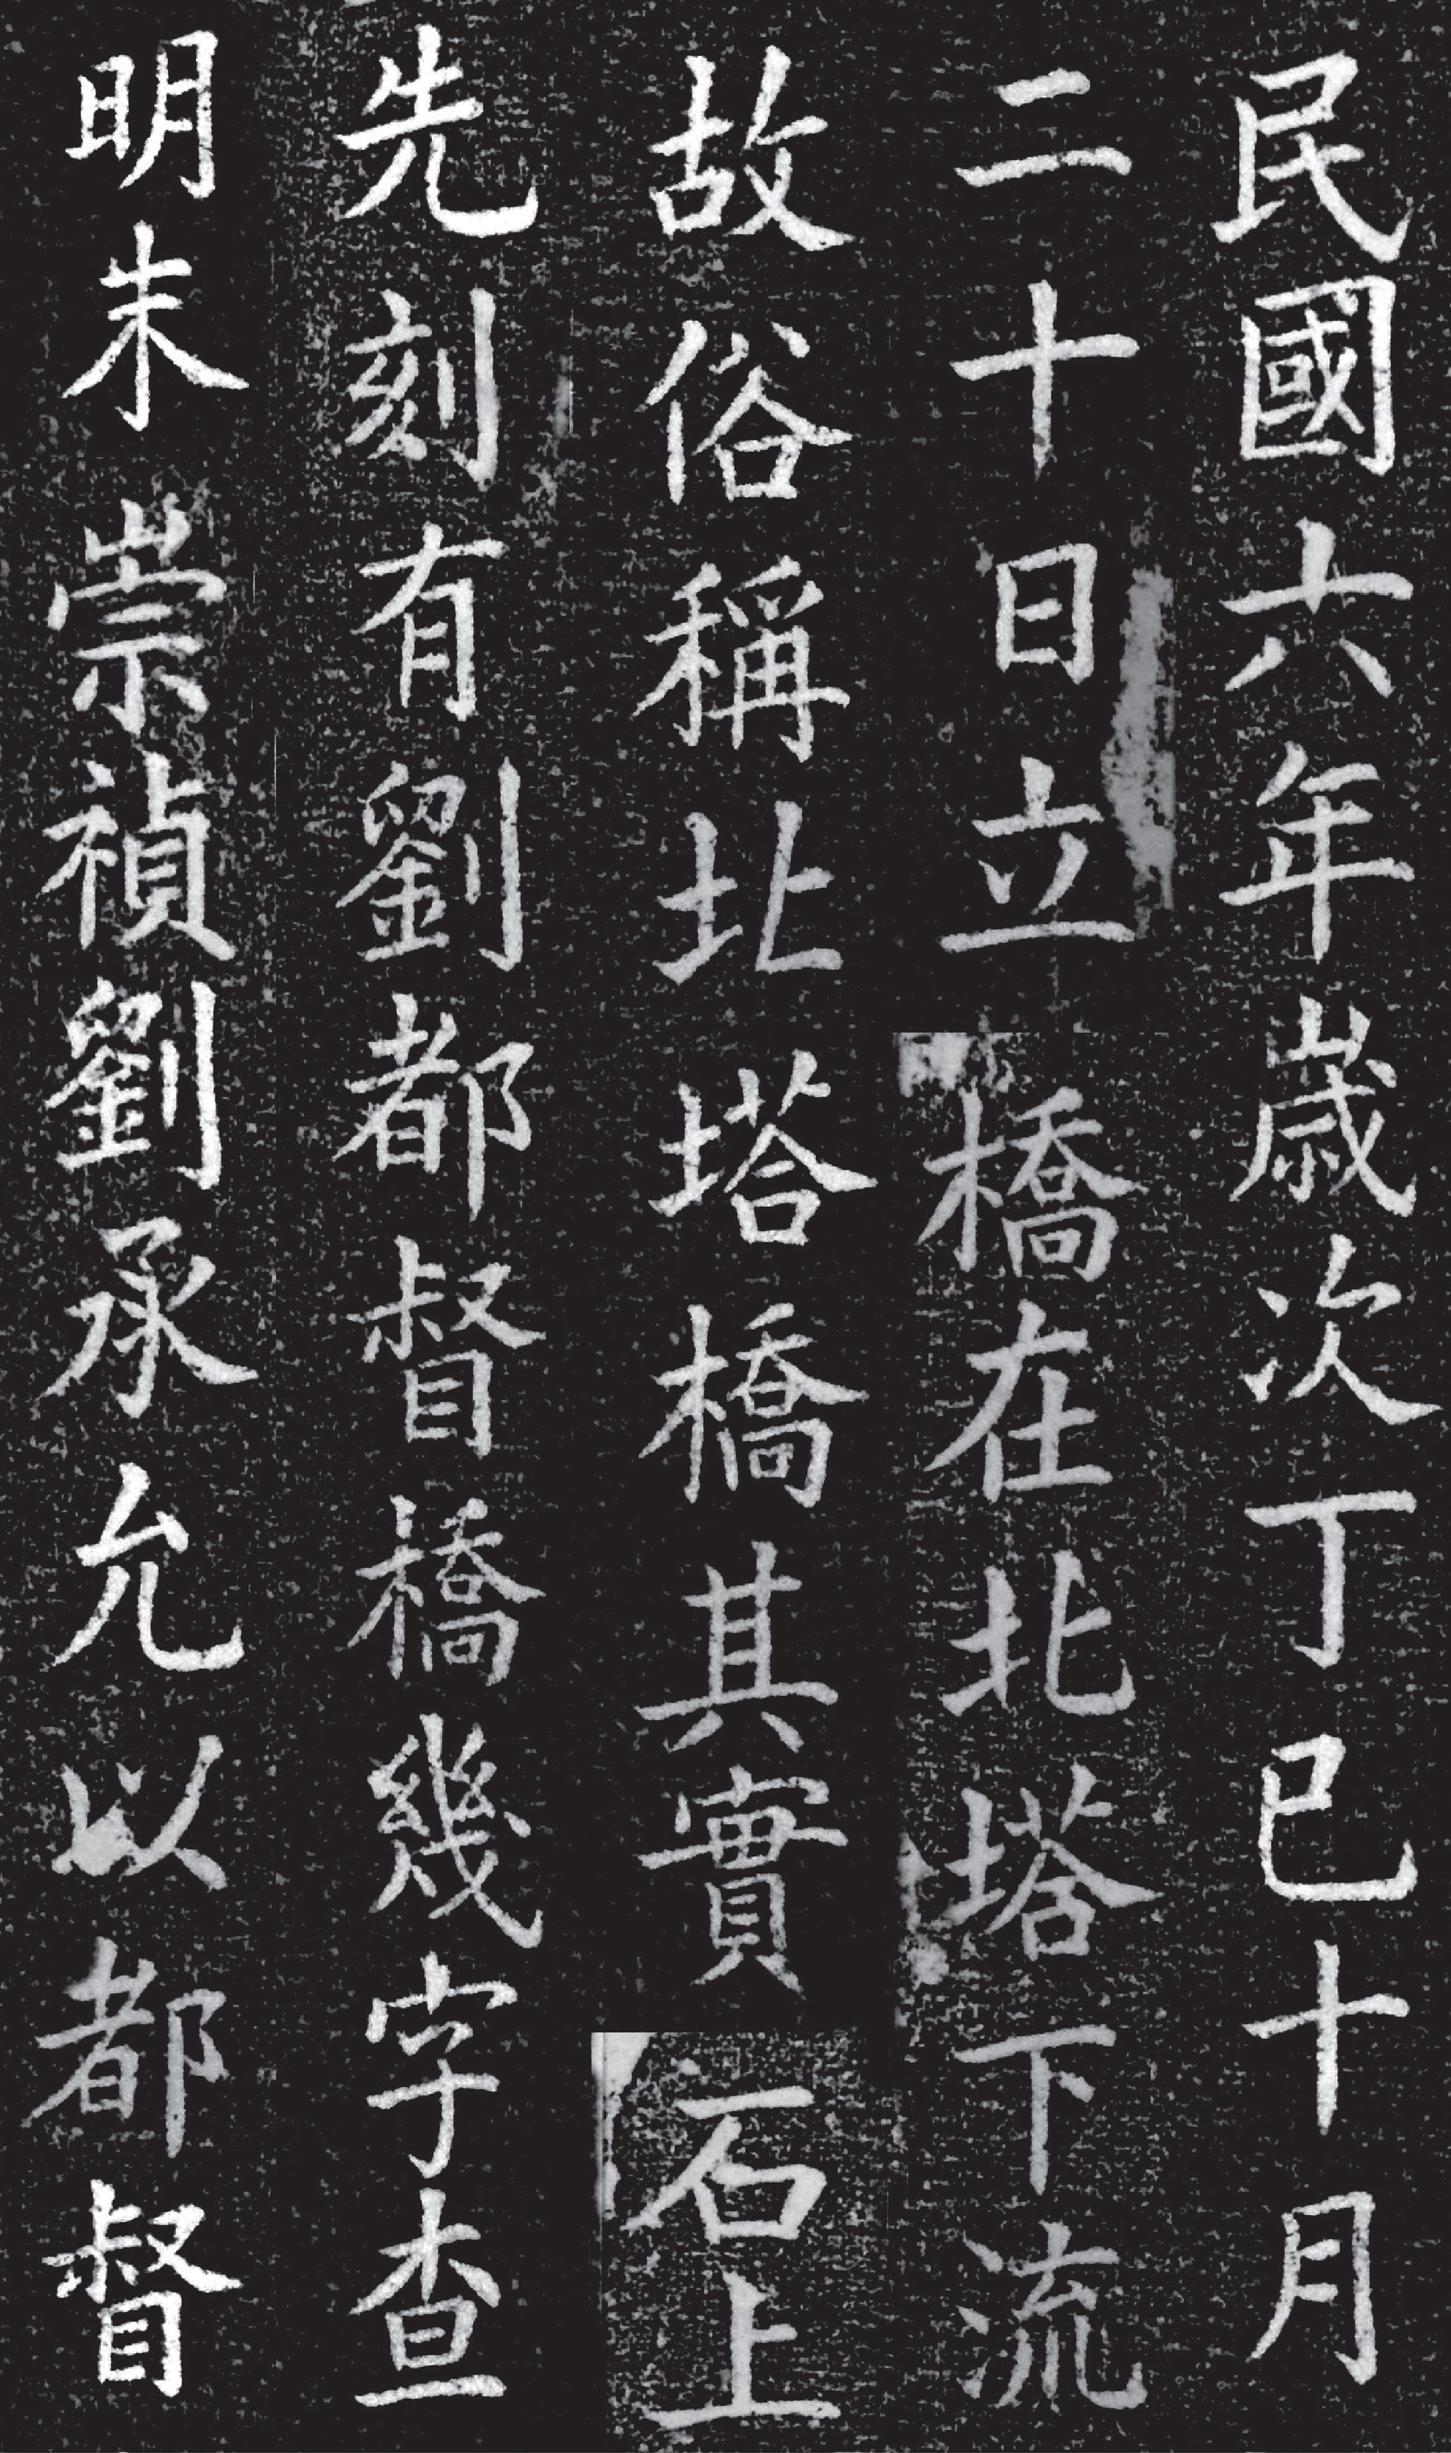 民國六年歲次丁巳十月
二十日立橋在北塔下流
故俗稱北塔橋其實石上
先刻有劉都督橋幾字查
明末崇禎劉承允以都督